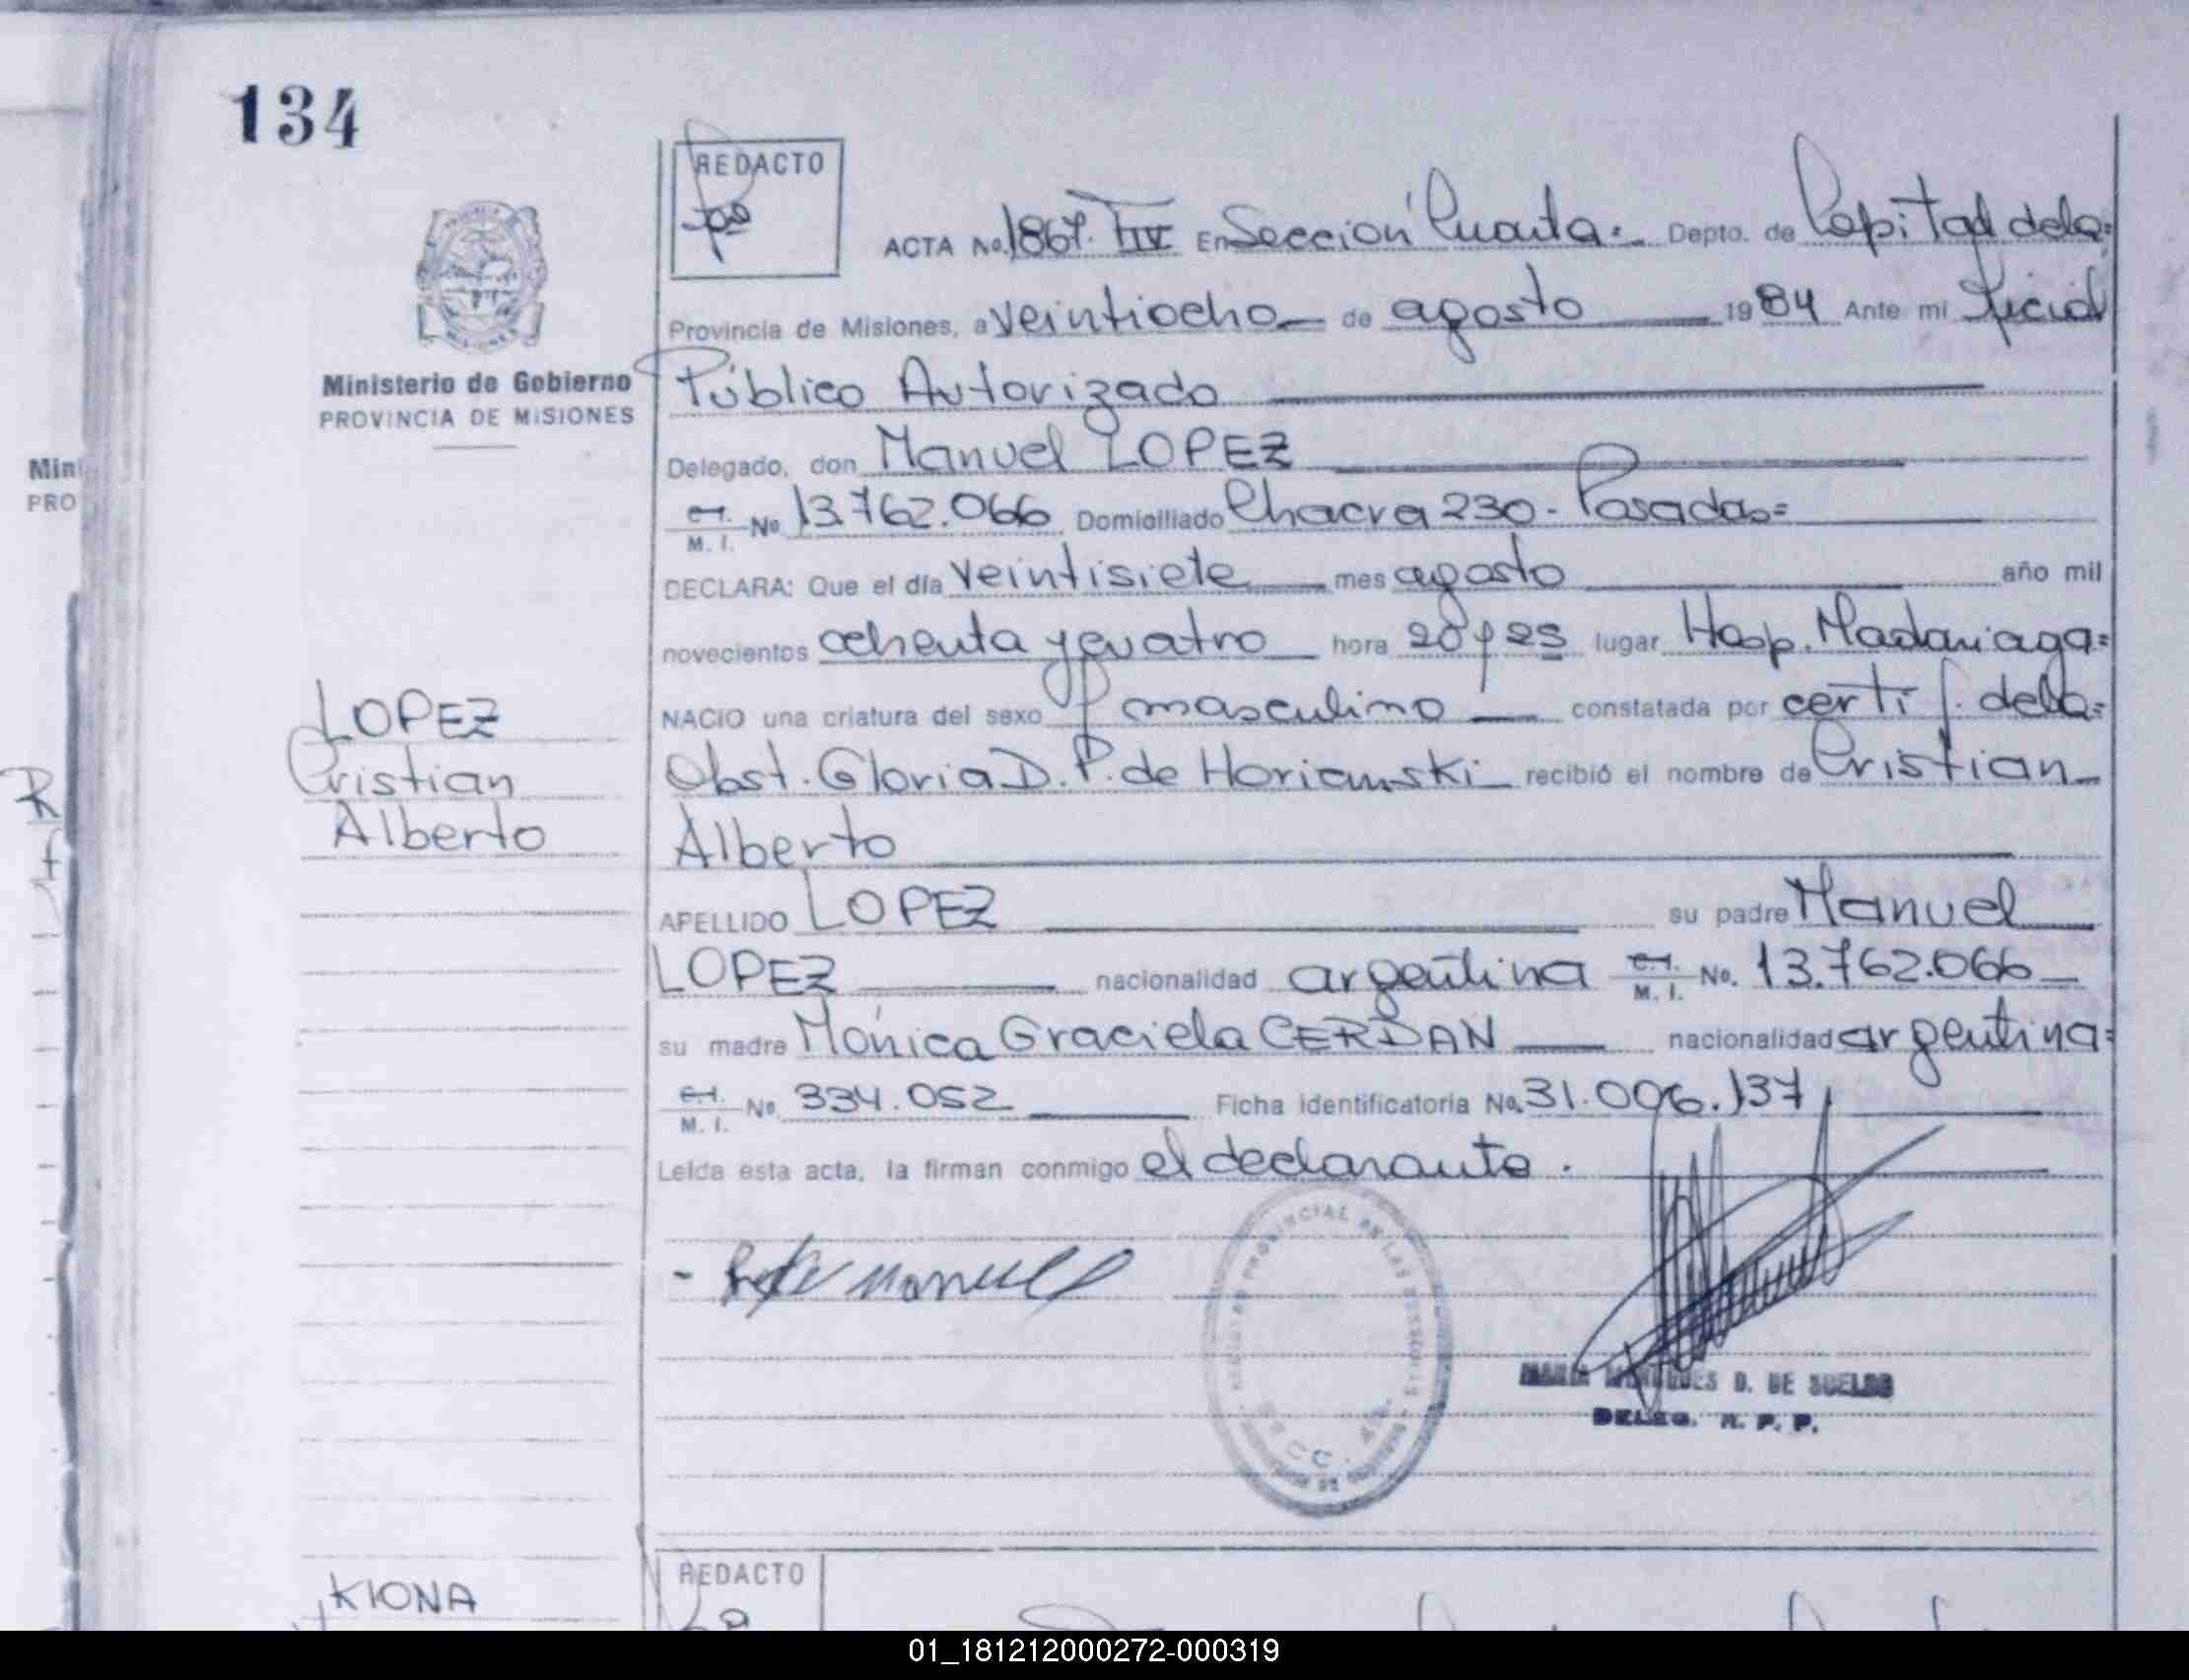 134
REDACTO
ACTA No. 1867. TIV En Sección Cuarta=. Depto. de Capital de la=
Provincia de Misiones, a veintiocho de agosto 1984 Ante mí Oficial
Público Autorizado
Ministerio de Gobierno
PROVINCIA DE MISIONES
Delegado, don Manuel LOPEZ
C.I. M. I. No 13.762.066 Domiciliado Chacra 230 - Posadas=
DECLARA: Que el día veintisiete mes agosto año mil
novecientos ochenta y cuatro hora 20 y 25 lugar Hosp. Madariaga=
NACIO una criatura del sexo masculino constatada por certif. de la=
Obst. Gloria D. P. de Horianski recibió el nombre de Cristian
Alberto
LOPEZ
Cristian
Alberto
APELLIDO LOPEZ su padre Manuel
LOPEZ nacionalidad argentina C.I. M. I. No. 13.762.066
su madre Mónica Graciela CERDAN nacionalidad argentina=
C.I. M. I. No. 334.052 Ficha identificatoria No. 31.006.137
Leída esta acta, la firman conmigo el declarante.
Manuel
PROVINCIAL DE LAS PERSONAS
SECC. 4a.
MARIA D. DE SUELDO
DELEG. R. P. P.
KIONA
REDACTO
Mini
PRO
01_181212000272-000319